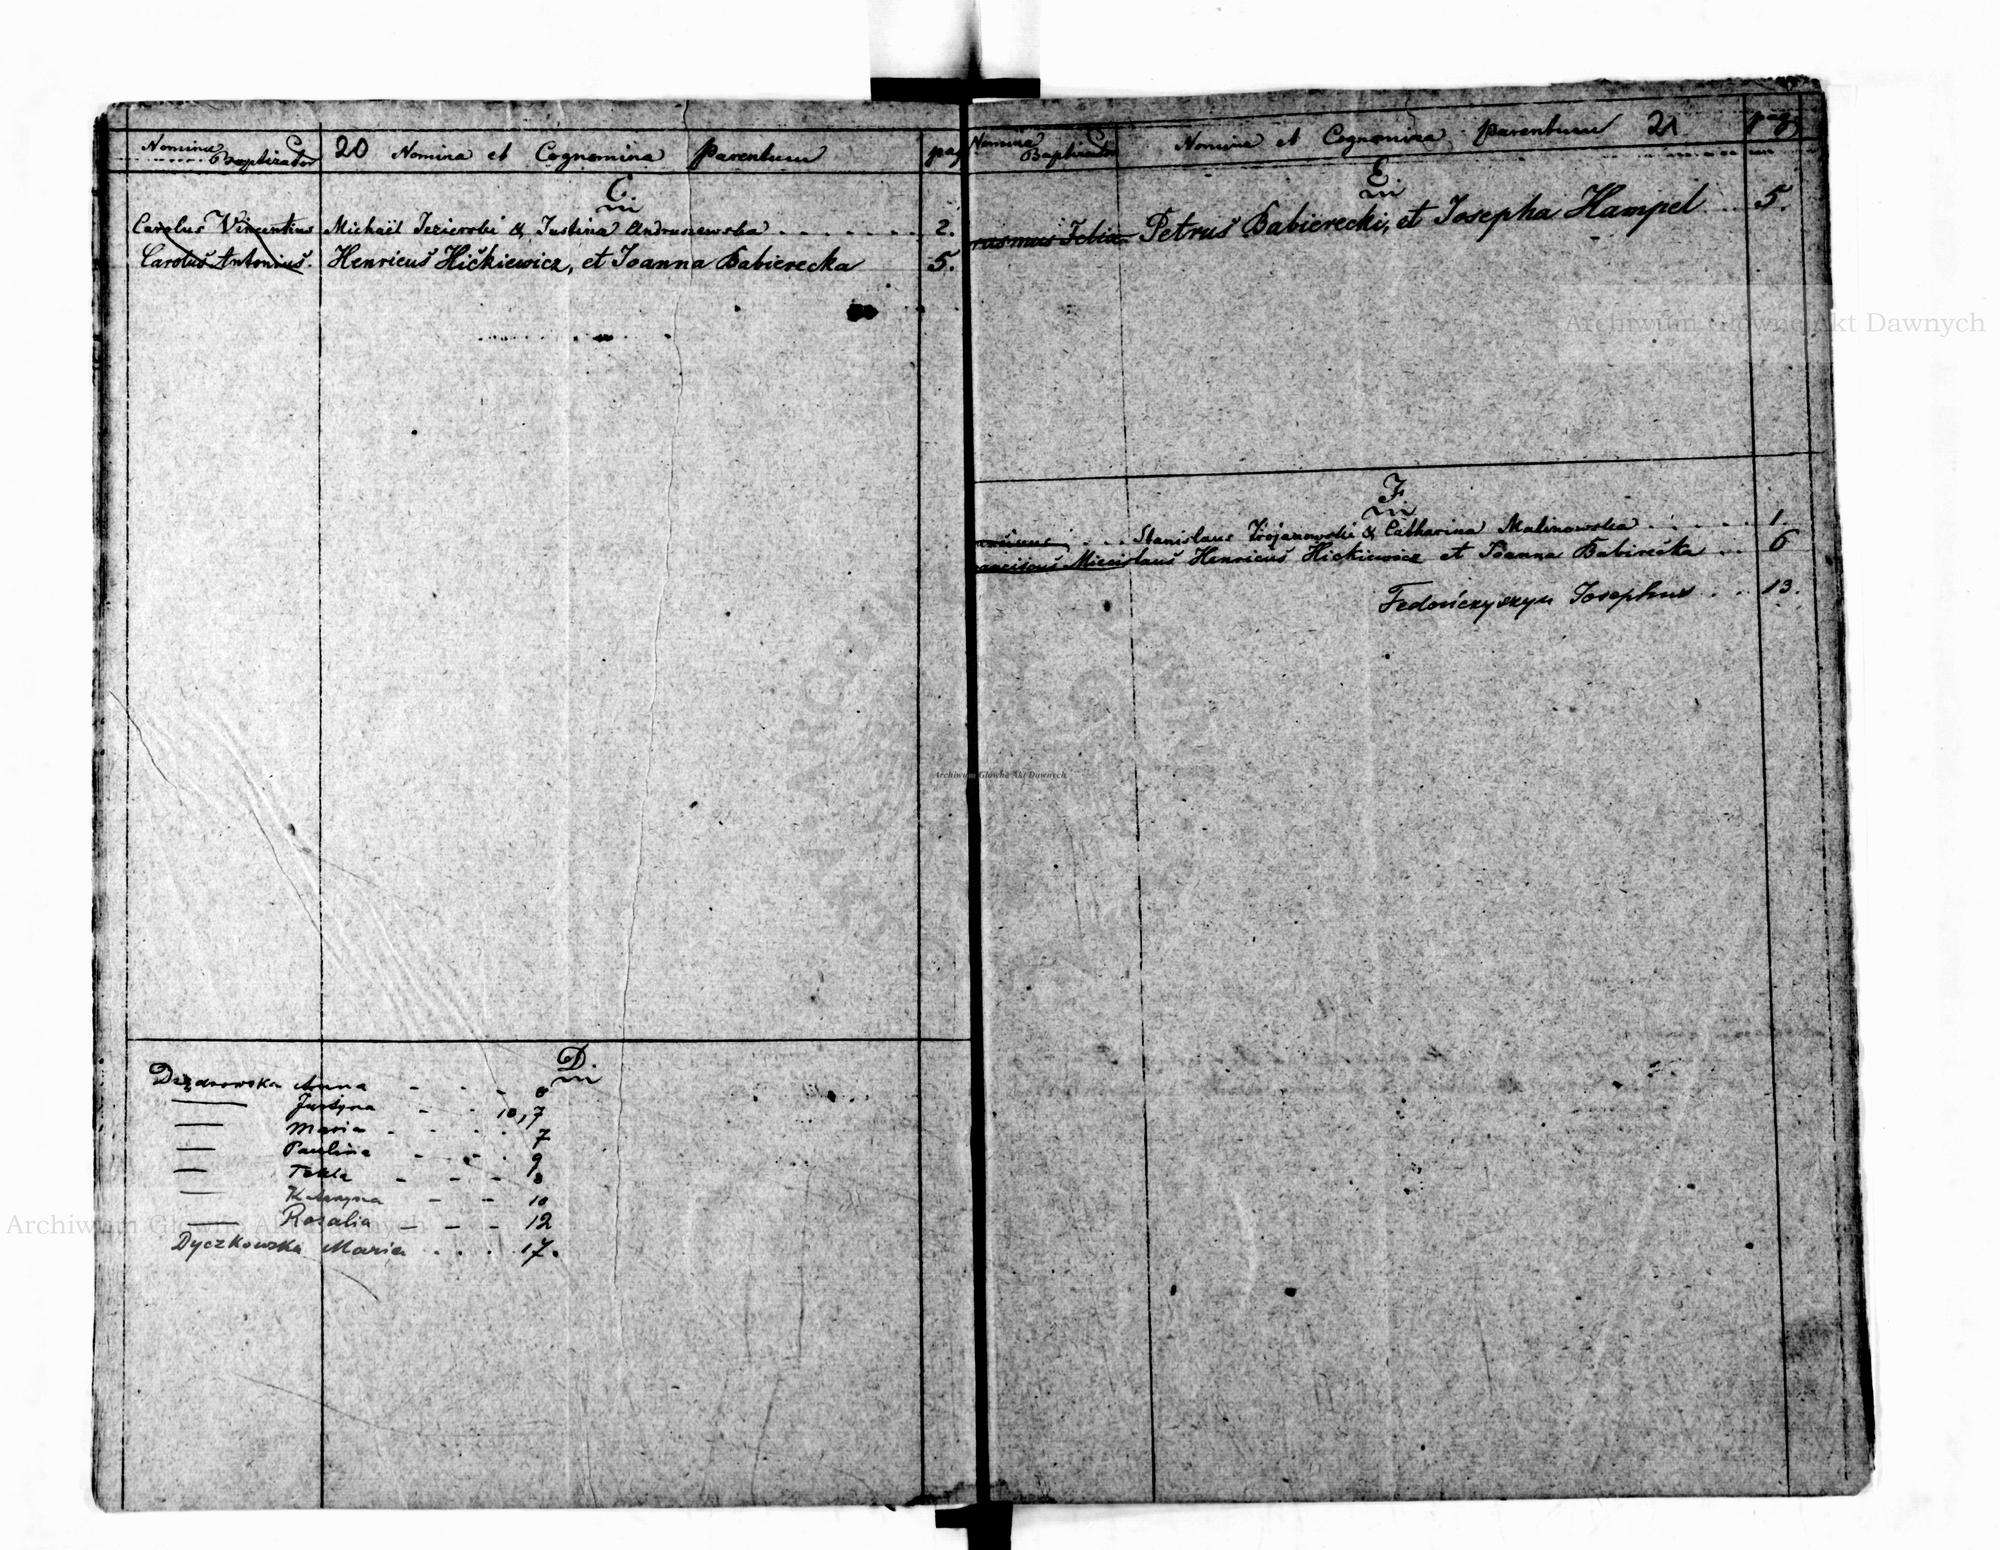 Nomina Baptizator 20 Nomina et Cognomina Parentum pag
C.
Carolus Vincentius Michaël Jezierski & Justina Andruszewska 2.
Carolus Antonius. Henricus Hickiewicz, et Joanna Babierecka 5.
D.
Anna 8
Justyna 10, 7
Maria 7
Paulina 9
Tekla 8
Katarzyna 10
Rosalia 12
Dyczkowska Maria 17.
Nomina Baptizator Nomina et Cognomina Parentum 21 pag
E.
rasmus Felix Petrus Babierecki, et Josepha Hampel 5.
F.
Stanislaus Trojanowski & Catharina Malinowska 1.
ranciscus Miecislaus Henricus Hickiewicz et Joanna Babirecka 6
Fedończyszyn Josephus 13.
Archiwum Główne Akt Dawnych
Archiwum Główne Akt Dawnych
Archiwum Główne Akt Dawnych